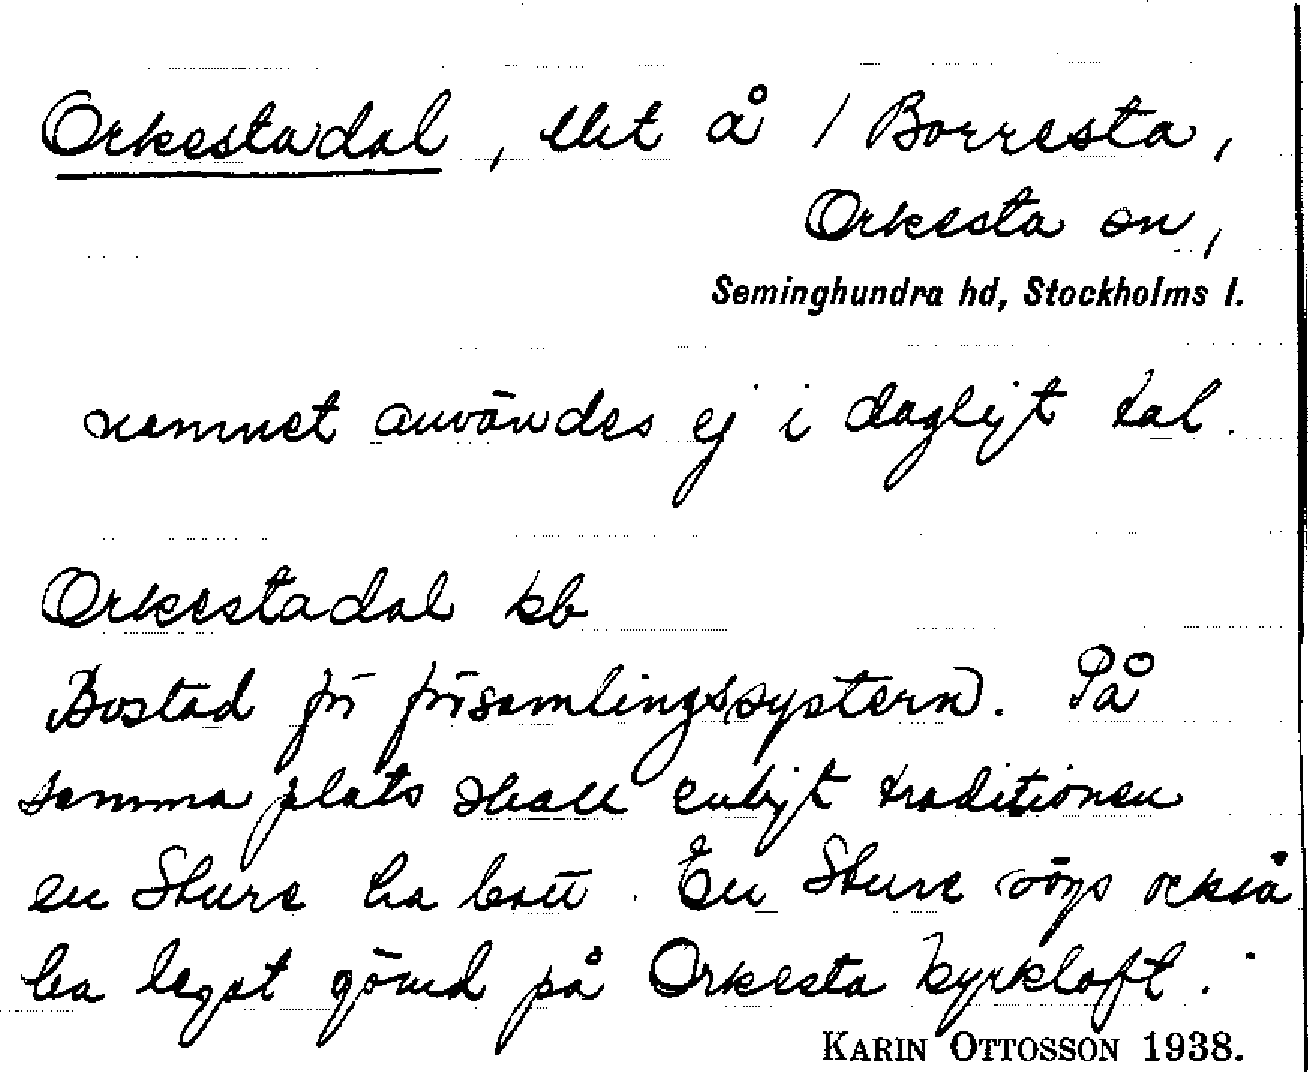 Orkestadal, lht å / Borresta,
Orkesta sn,
Seminghundra hd, Stockholms l.
namnet användes ej i dagligt tal.
Orkestadal kb
Bostad för församlingssystern. På
samma plats skall enligt traditionen
en Sture ha bott. En Sture sägs också
ha legat gömd på Orkesta kyrkloft.
KARIN OTTOSSON 1938.